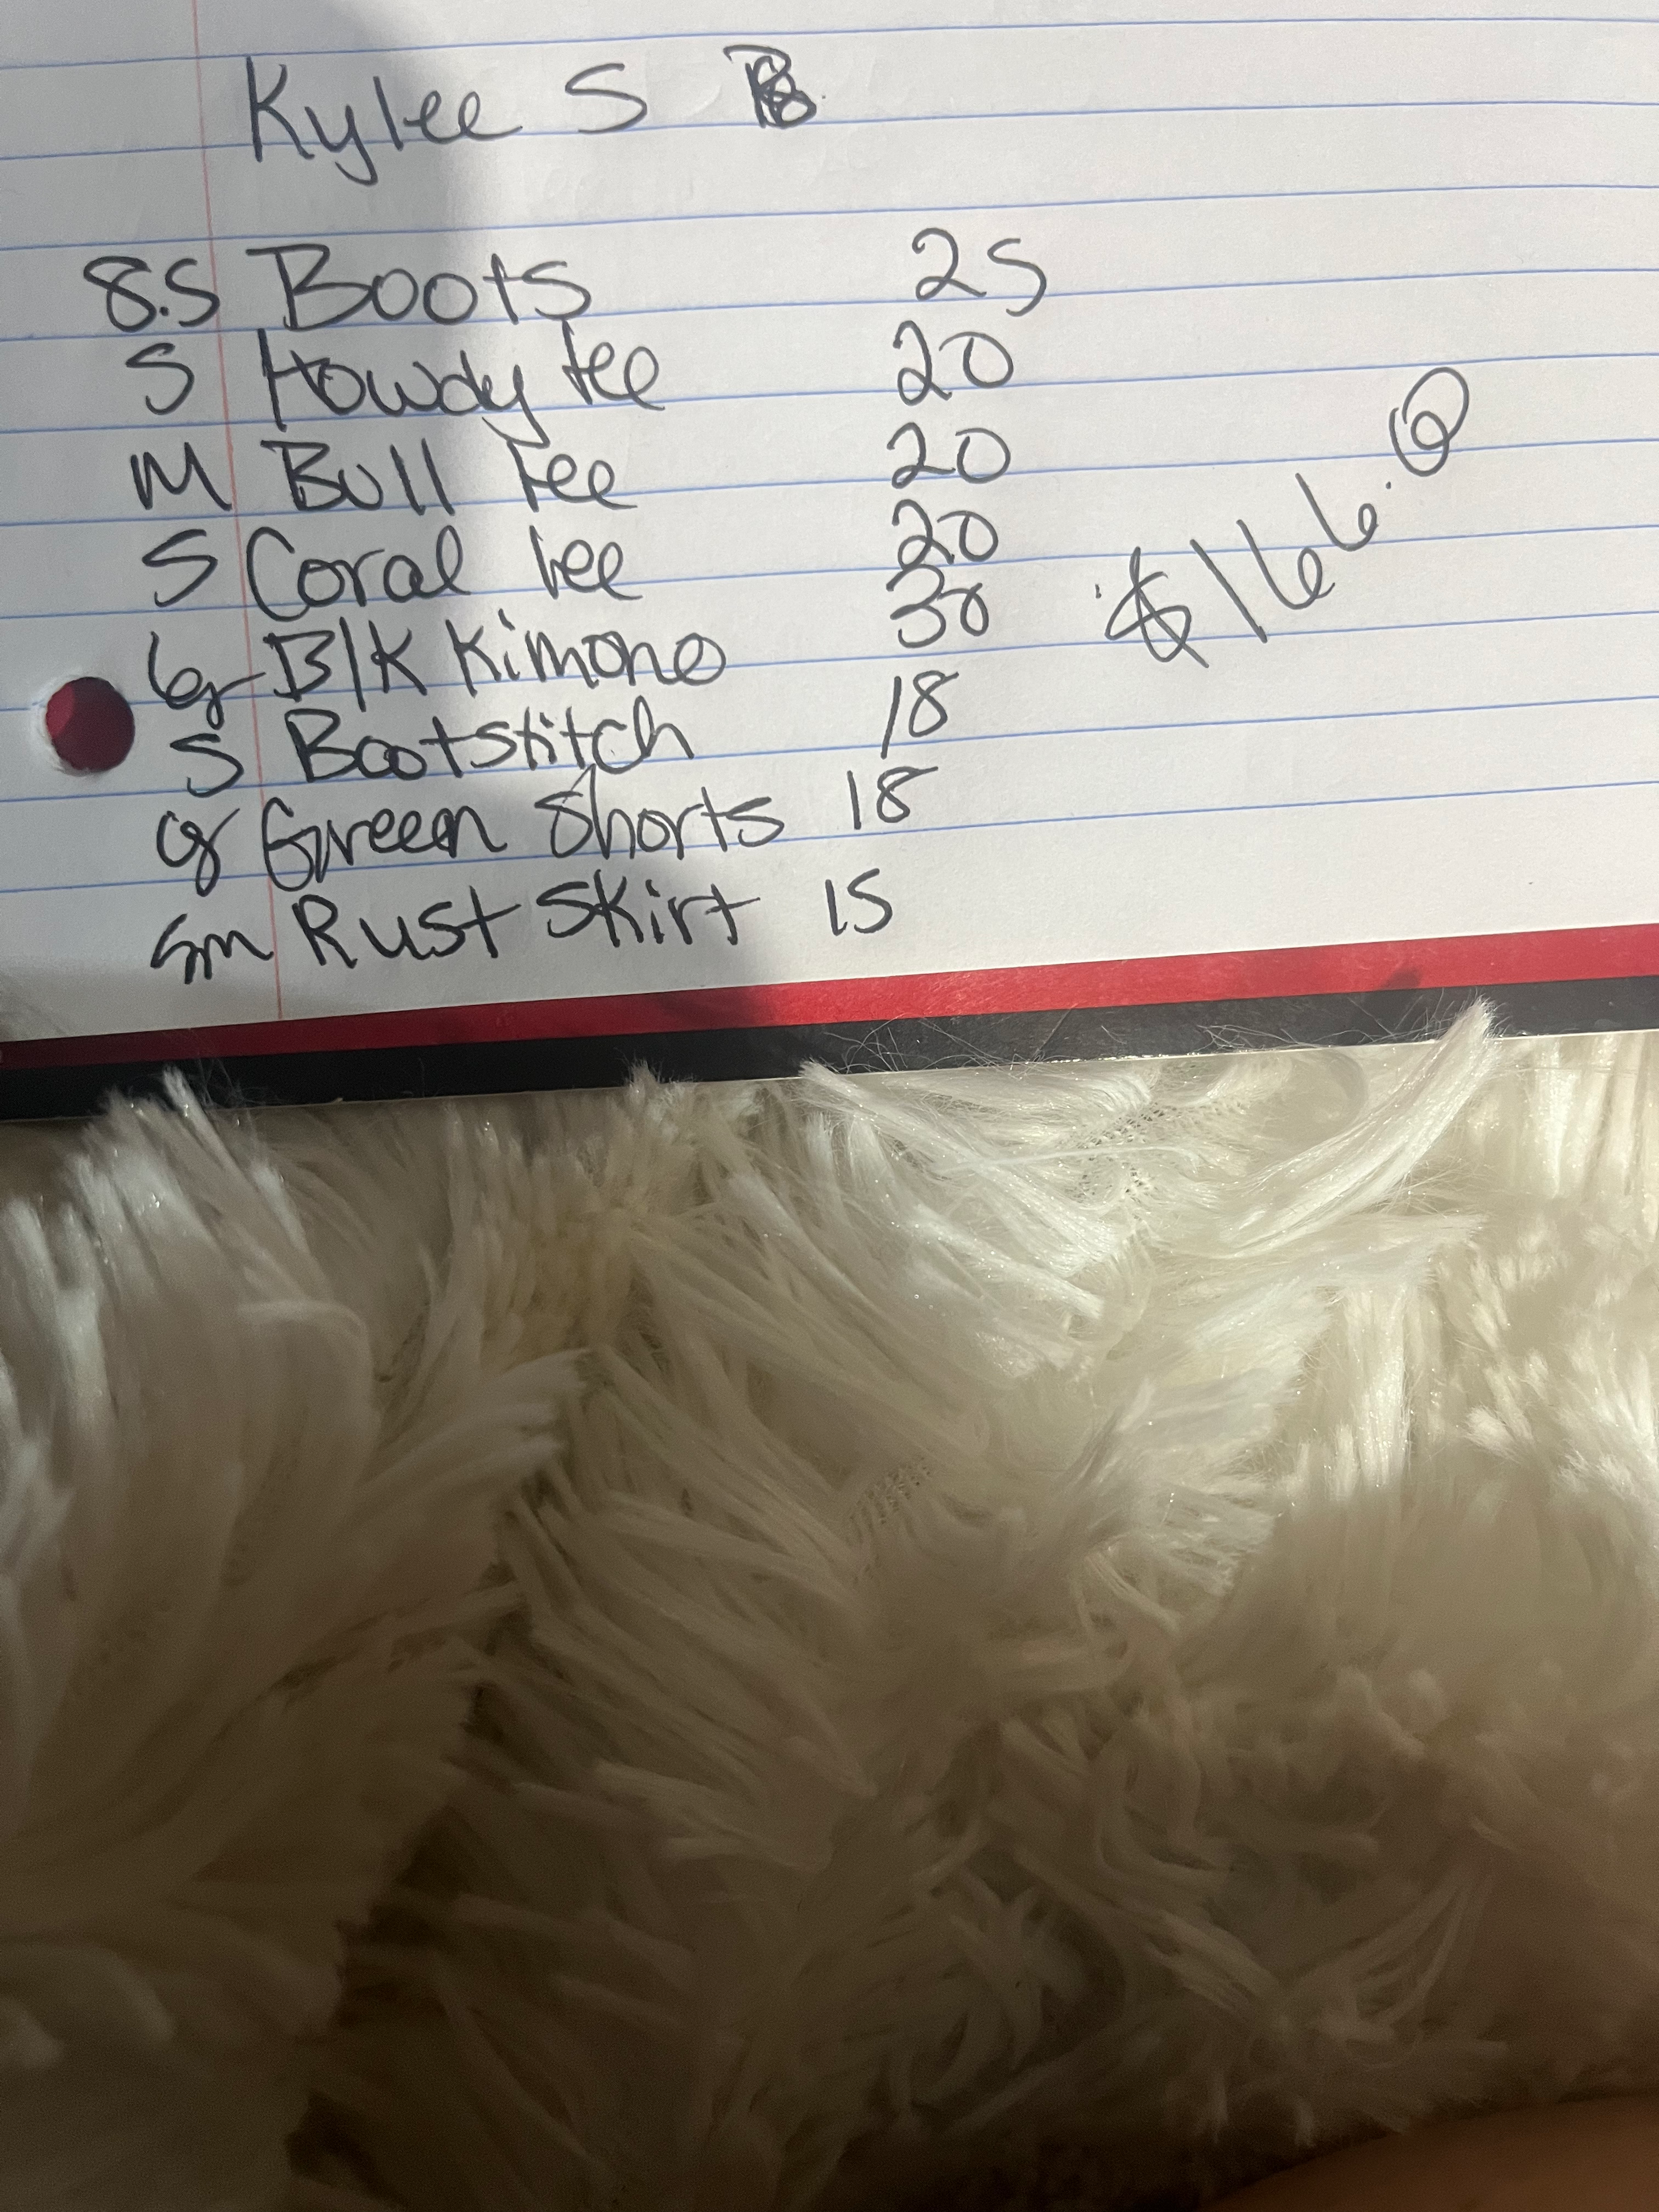 Kylee S
8.5 Boots 25
S Howdy tee 20
M Bull tee 20
S Coral tee 20
B/K Kimono 30
S Bootstitch 18
Green Shorts 18
Sm Rust Skirt 15
$166.0